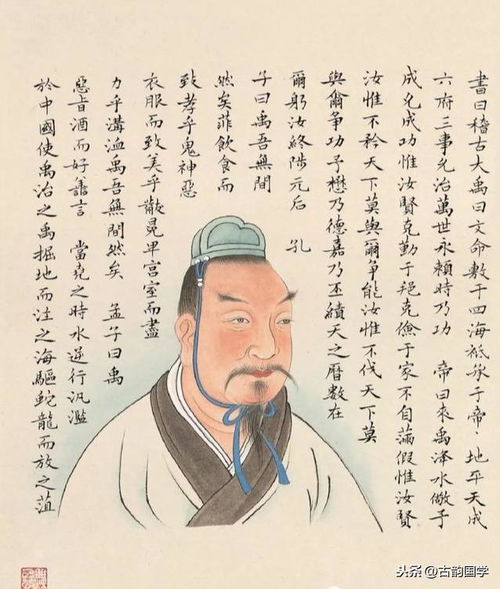 書曰稽古大禹曰文命敷于四海祗承于帝 地平天成
六府三事允治萬世永賴時乃功 帝曰來禹洚水儆予
成允成功惟汝賢克勤于邦克儉于家不自滿假惟汝賢
汝惟不矜天下莫與爾爭能汝惟不伐天下莫
與爾爭功予懋乃德嘉乃丕績天之曆數在
爾躬汝終陟元后 孔
子曰禹吾無間
然矣菲飲食而
致孝乎鬼神惡
衣服而致美乎黻冕卑宮室而盡
力乎溝洫禹吾無間然矣 孟子曰禹
惡旨酒而好善言 當堯之時水逆行汎濫
於中國使禹治之禹掘地而注之海驅蛇龍而放之菹
头条@古韵国学